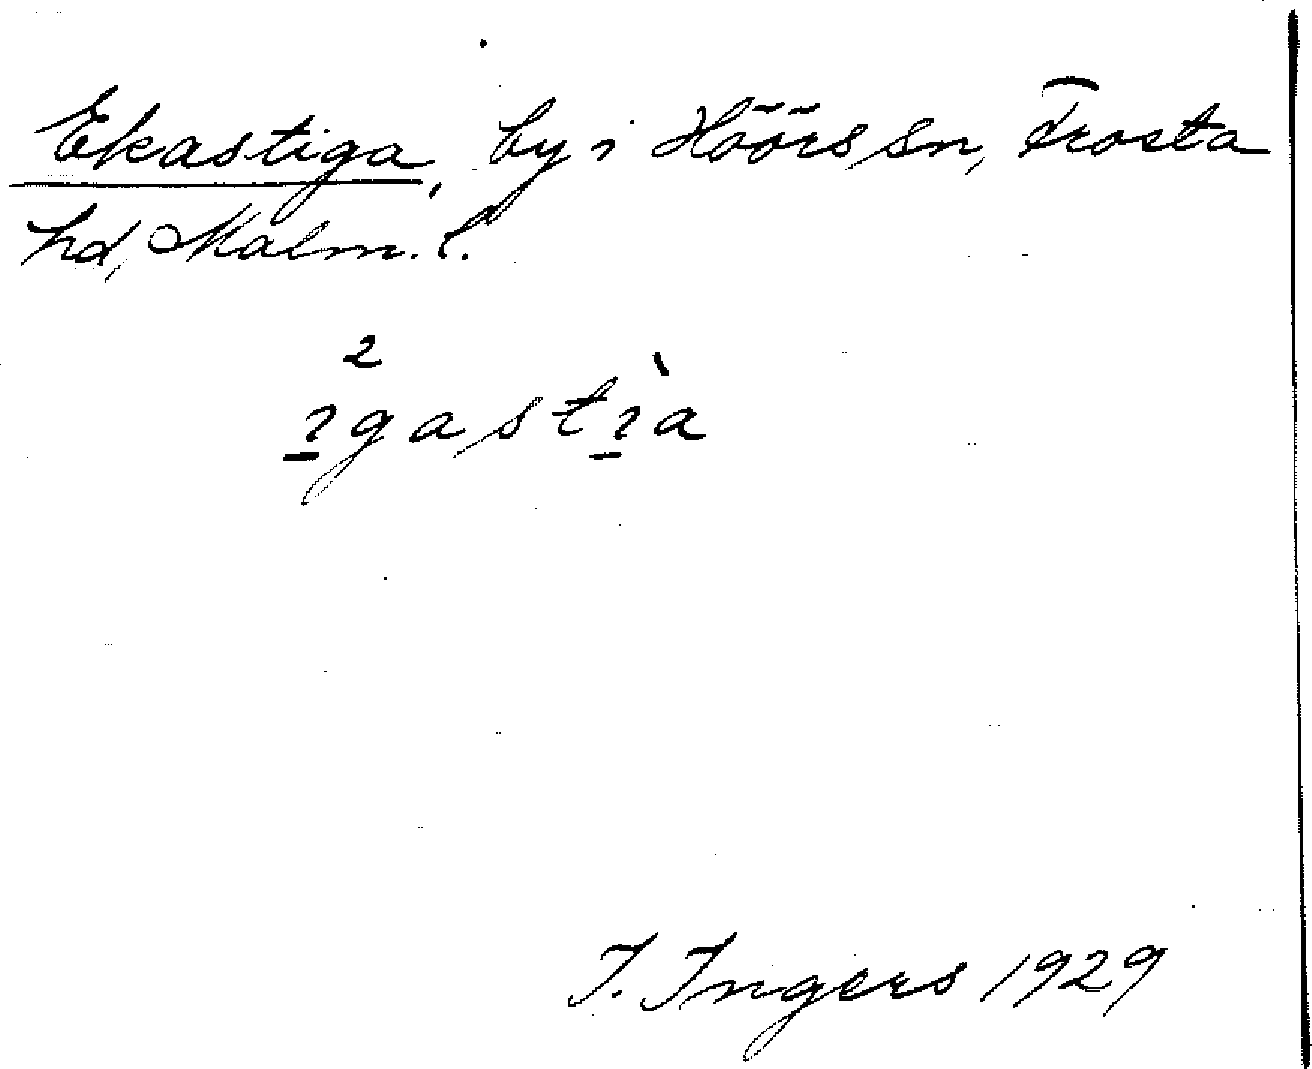 Ekastiga, by i Höörs sn, Frosta
hd, Malm. l.
2 `
ɂgastɂa
I. Ingers 1929